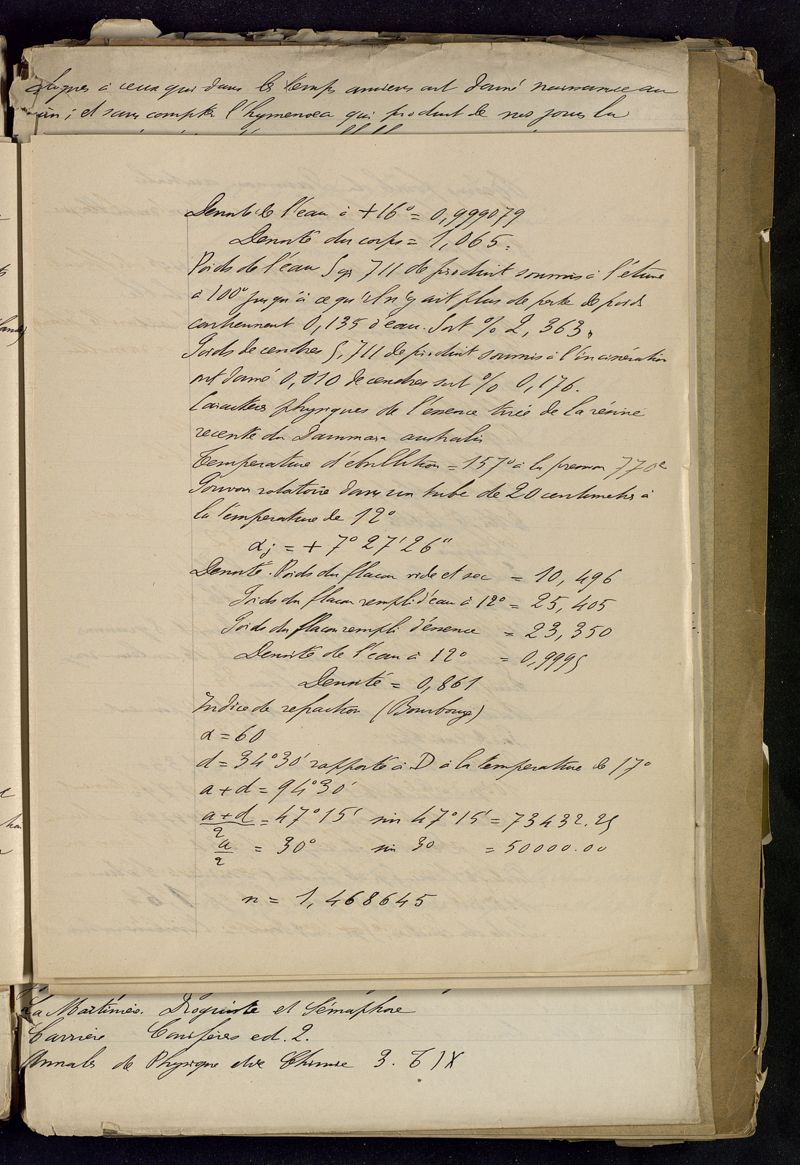 à ceux qui dans les temps anciens ont donné naissance au
; et sans compter l'hymenoea qui produit de nos jours la
Densité de l'eau à +16° = 0,999079
Densité du corps = 1,065.
Poids de l'eau 5gr 711 de produit soumis à l'étuve
à 100° jusqu'à ce qu'il n'y ait plus de perte de poids
contiennent 0,135 d'eau. Soit % 2,363.
Poids de cendres 5,711 de produit soumis à l'incinération
ont donné 0,010 de cendres soit % 0,176.
Caractères physiques de l'essence tirée de la résine
recente du Dammara australis
Temperature d'ebullition = 157° à la pression 770
Pouvoir rotatoire dans un tube de 20 centimetres à
la température de 12°
αj = + 7° 27' 26"
Densité. Poids du flacon vide et sec = 10,496
Poids du flacon rempli d'eau à 12° = 25,405
Poids du flacon rempli d'essence = 23,350
Densité de l'eau à 12° = 0,9995
Densité = 0,861
Indice de refraction (Bourbouze)
a = 60
d = 34°30' rapporté à D à la temperature de 17°
a + d = 94°30'
a+d/2 = 47°15' sin 47°15' = 73432.25
a/2 = 30° sin 30 = 50000.00
n = 1,468645
La Martinière. Droguiste et Sémaphore
Carrière Conifères ed. 2.
Annales de Physique et de Chimie 3. T IX